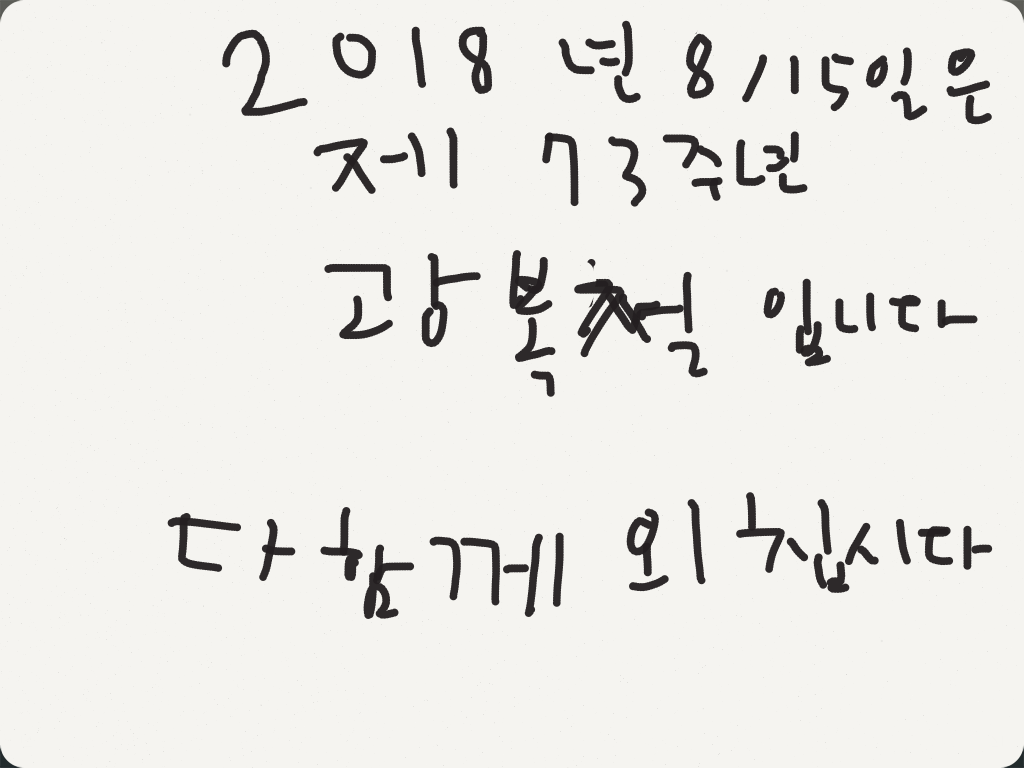 2018 년 8/15일은
제 73주년
광복절 입니다
다함께 외칩시다